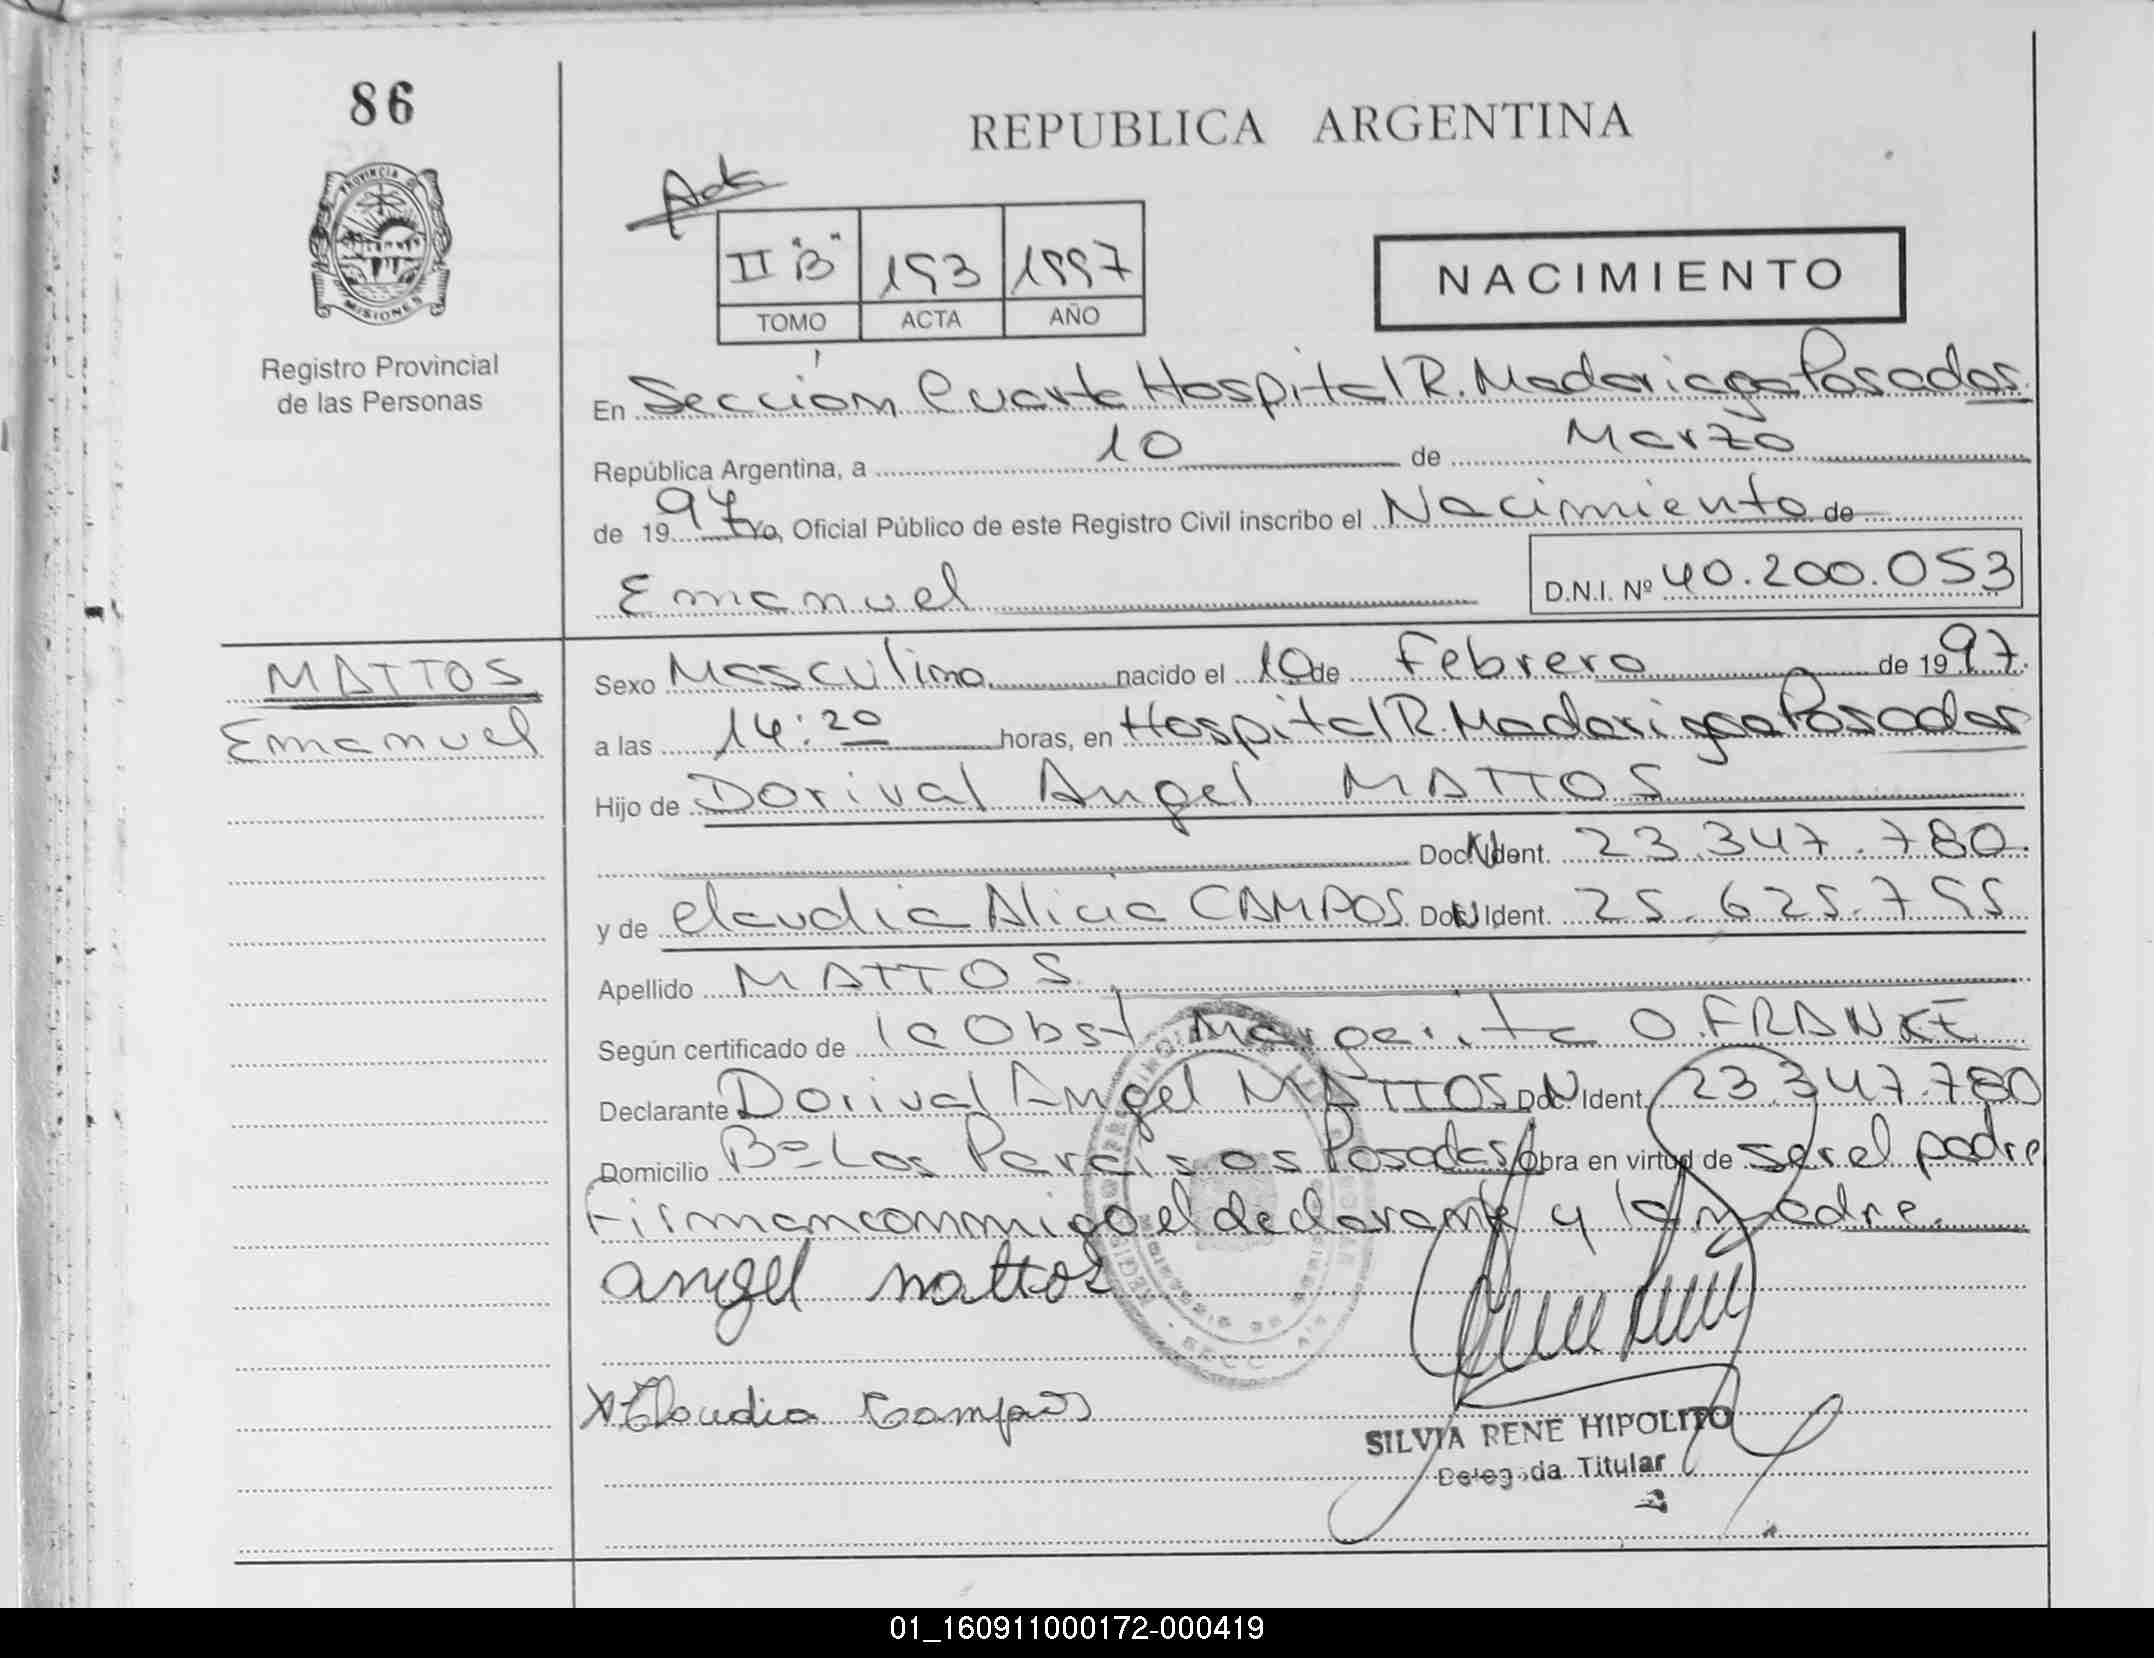 86
REPUBLICA ARGENTINA
PROVINCIA DE
MISIONES
Registro Provincial
de las Personas
Acta
II "B" 193 1997
TOMO ACTA AÑO
NACIMIENTO
En Sección Cuarta Hospital R. Madariaga Posadas
República Argentina, a 10 de Marzo
de 1997 Yo, Oficial Público de este Registro Civil inscribo el Nacimiento de
Emanuel
D.N.I. Nº 40.200.053
MATTOS
Emanuel
Sexo Masculino nacido el 10 de Febrero de 1997.
a las 14:20 horas, en Hospital R. Madariaga Posadas
Hijo de Dorival Angel MATTOS
Doc. N Ident. 23.347.780.
y de Claudia Alicia CAMPOS Doc. N Ident. 25.625.755
Apellido MATTOS
Según certificado de la Obst Margarita O. FRANKE
Declarante Dorival Angel MATTOS Doc. N Ident. 23.347.780
Domicilio Bº Los Paraisos Posadas Obra en virtud de ser el padre
Firman conmigo el declarante y la madre.
angel mattos
X Claudia Campos
SILVIA RENE HIPOLITO
Delegada Titular
01_160911000172-000419